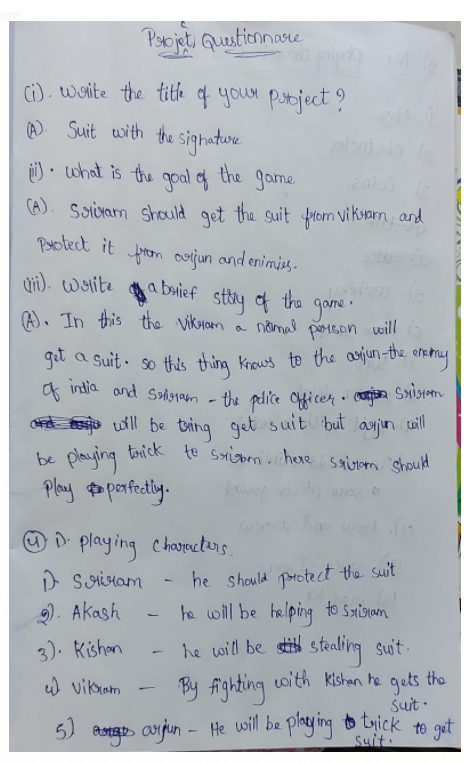 Projet, Questionnare
c
(i). Write the title of your project?
(A) Suit with the signature
(ii). what is the goal of the game
(A). Sriram should get the suit from vikram, and
Protect it from arjun and enimies.
(iii). Write a brief story of the game.
(A). In this the Vikram a normal person will
get a suit. so this thing knows to the arjun-the enemy
of india and Sriram - the police officer. Sriram
will be tring get suit but arjun will
be playing trick to sriram. here sriram should
Play perfectly.
(4) 1). playing characters.
1) Sriram - he should protect the suit
2). Akash - he will be helping to Sriram
3). Kishan - he will be stealing suit.
4) Vikram - By fighting with Kishan he gets the
suit.
5) arjun - He will be playing trick to get
suit.